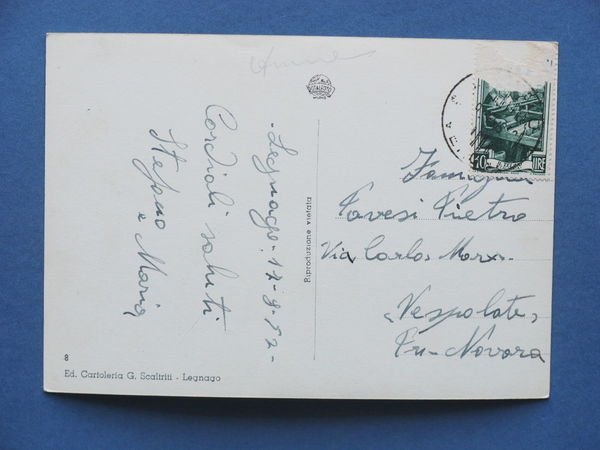 - Legnago - 17-8-52 -
Cordiali saluti
Stefano
e Maria
Riproduzione vietata
8
Ed. Cartoleria G. Scaltriti - Legnago
10 LIRE
Famiglia
Pavesi Pietro
Via Carlos Marx.
"Vespolate"
Pr-Novara